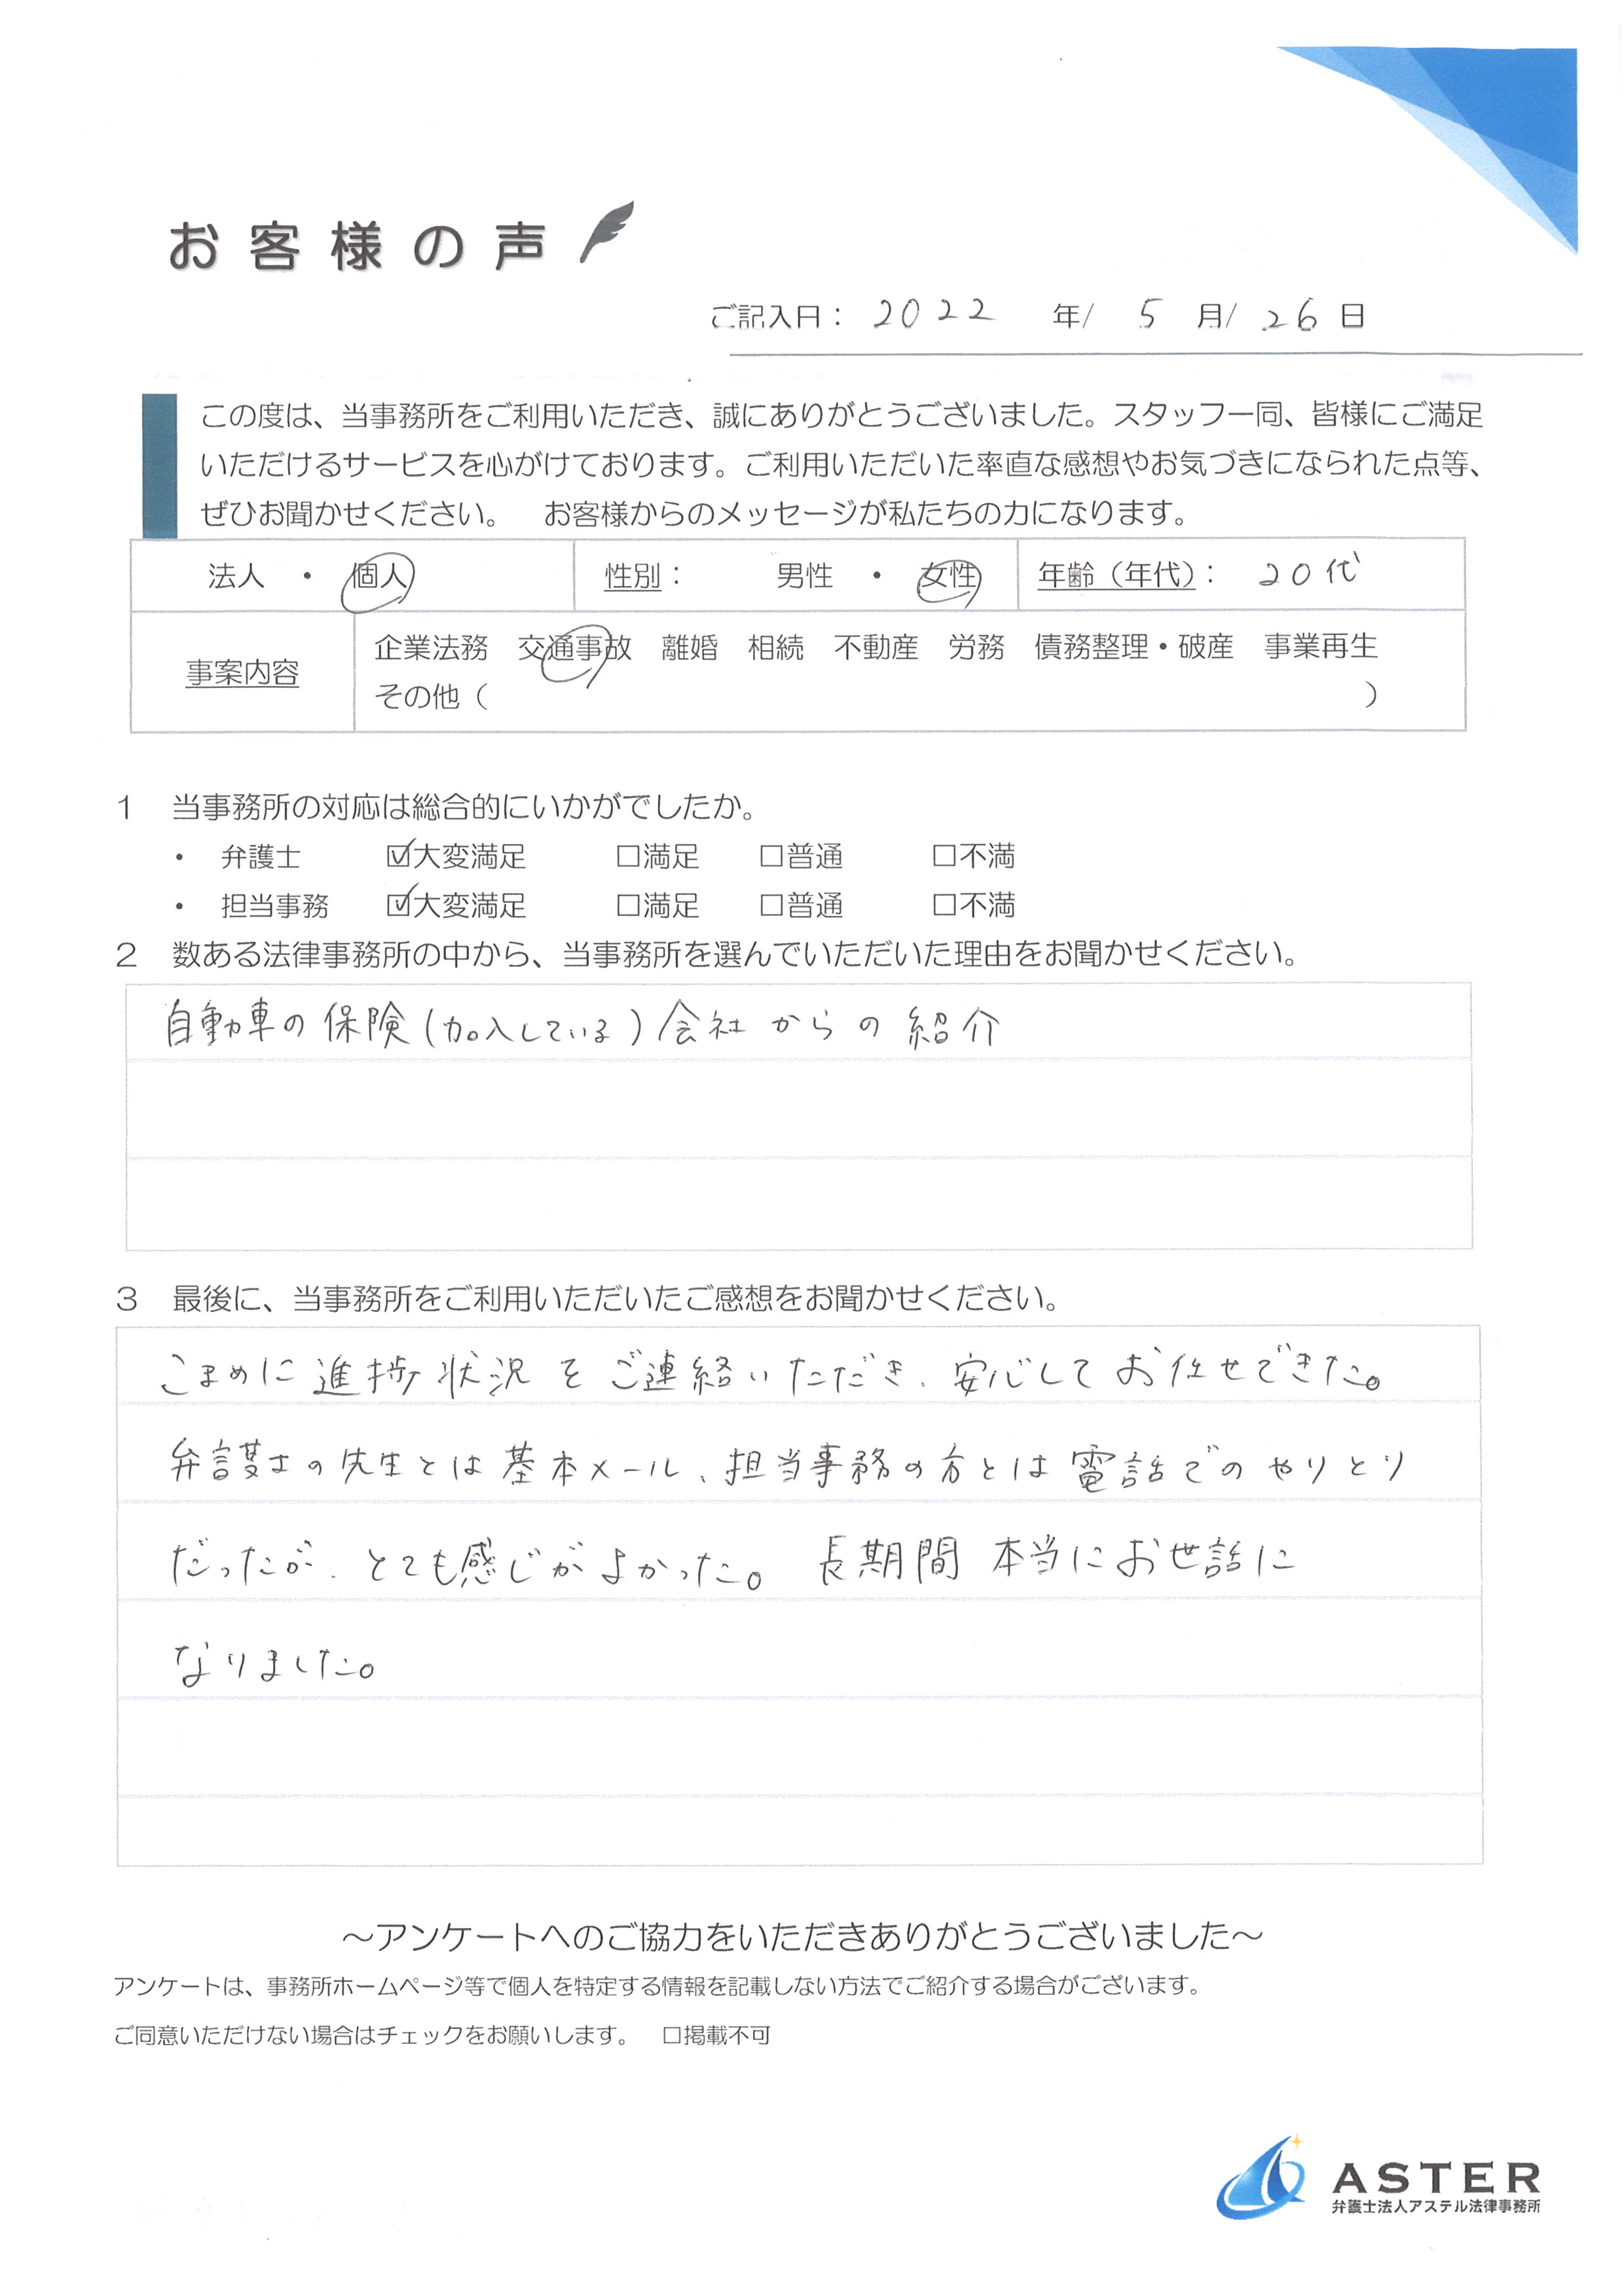 お客様の声
ご記入日： 2022 年/ 5 月/ 26 日
この度は、当事務所をご利用いただき、誠にありがとうございました。スタッフ一同、皆様にご満足
いただけるサービスを心がけております。ご利用いただいた率直な感想やお気づきになられた点等、
ぜひお聞かせください。　お客様からのメッセージが私たちの力になります。
法人 ・ 個人 性別： 男性 ・ 女性 年齢（年代）： 20代
事案内容
企業法務 交通事故 離婚 相続 不動産 労務 債務整理・破産 事業再生
その他（ ）
1 当事務所の対応は総合的にいかがでしたか。
・ 弁護士 ☑大変満足 □満足 □普通 □不満
・ 担当事務 ☑大変満足 □満足 □普通 □不満
2 数ある法律事務所の中から、当事務所を選んでいただいた理由をお聞かせください。
自動車の保険(加入している)会社からの紹介
3 最後に、当事務所をご利用いただいたご感想をお聞かせください。
こまめに進捗状況をご連絡いただき、安心してお任せできた。
弁護士の先生とは基本メール、担当事務の方とは電話でのやりとり
だったが、とても感じがよかった。長期間 本当にお世話に
なりました。
～アンケートへのご協力をいただきありがとうございました～
アンケートは、事務所ホームページ等で個人を特定する情報を記載しない方法でご紹介する場合がございます。
ご同意いただけない場合はチェックをお願いします。 □掲載不可
ASTER
弁護士法人アステル法律事務所